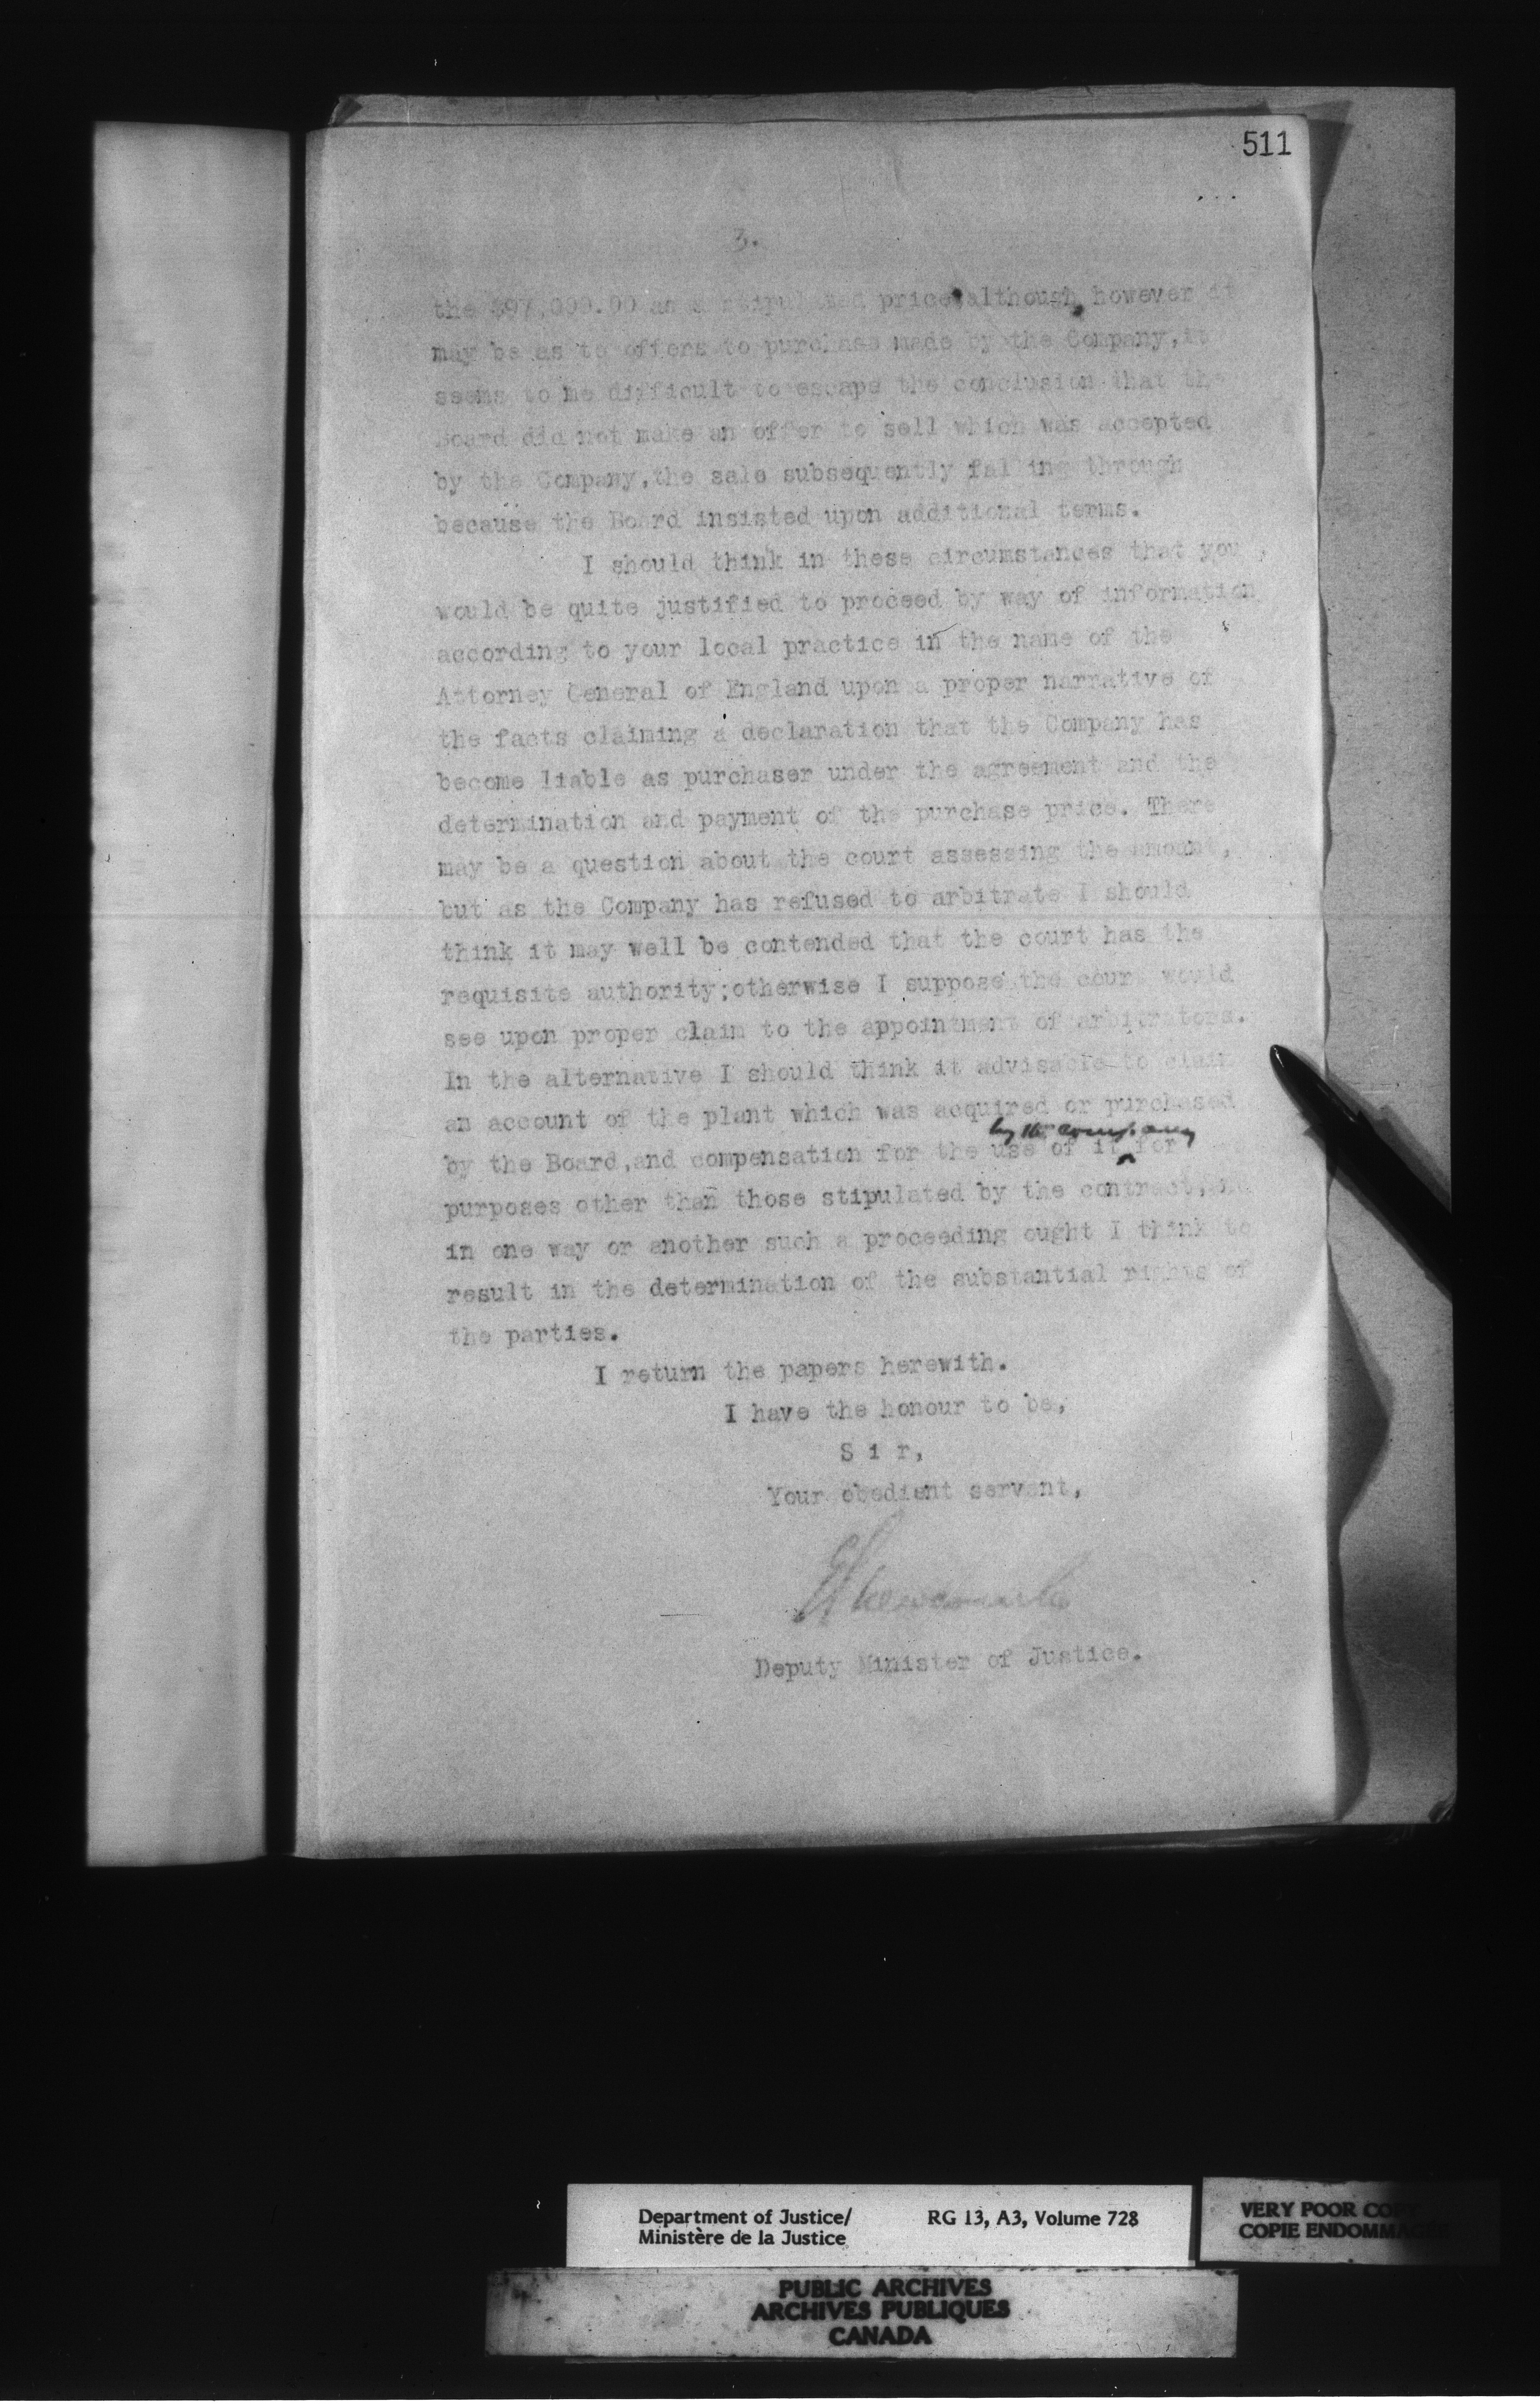 511
3.
the $97,000.00 as a stipulated price, although, however it
may be as to offers to purchase made by the Company, it
seems to me difficult to escape the conclusion that the
Board did not make an offer to sell which was accepted
by the Company, the sale subsequently falling through
because the Board insisted upon additional terms.
I should think in these circumstances that you
would be quite justified to proceed by way of information
according to your local practice in the name of the
Attorney General of England upon a proper narrative of
the facts claiming a declaration that the Company has
become liable as purchaser under the agreement and the
determination and payment of the purchase price. There
may be a question about the court assessing the amount,
but as the Company has refused to arbitrate I should
think it may well be contended that the court has the
requisite authority; otherwise I suppose the court would
see upon proper claim to the appointment of arbitrators.
In the alternative I should think it advisable to claim
an account of the plant which was acquired or purchased
by the Company
by the Board, and compensation for the use of it for
purposes other than those stipulated by the contract,
in one way or another such a proceeding ought I think to
result in the determination of the substantial rights of
the parties.
I return the papers herewith.
I have the honour to be,
S i r,
Your obedient servant,
E L Newcombe
Deputy Minister of Justice.
Department of Justice/ RG 13, A3, Volume 728
Ministère de la Justice
VERY POOR COPY
COPIE ENDOMMAGEE
PUBLIC ARCHIVES
ARCHIVES PUBLIQUES
CANADA